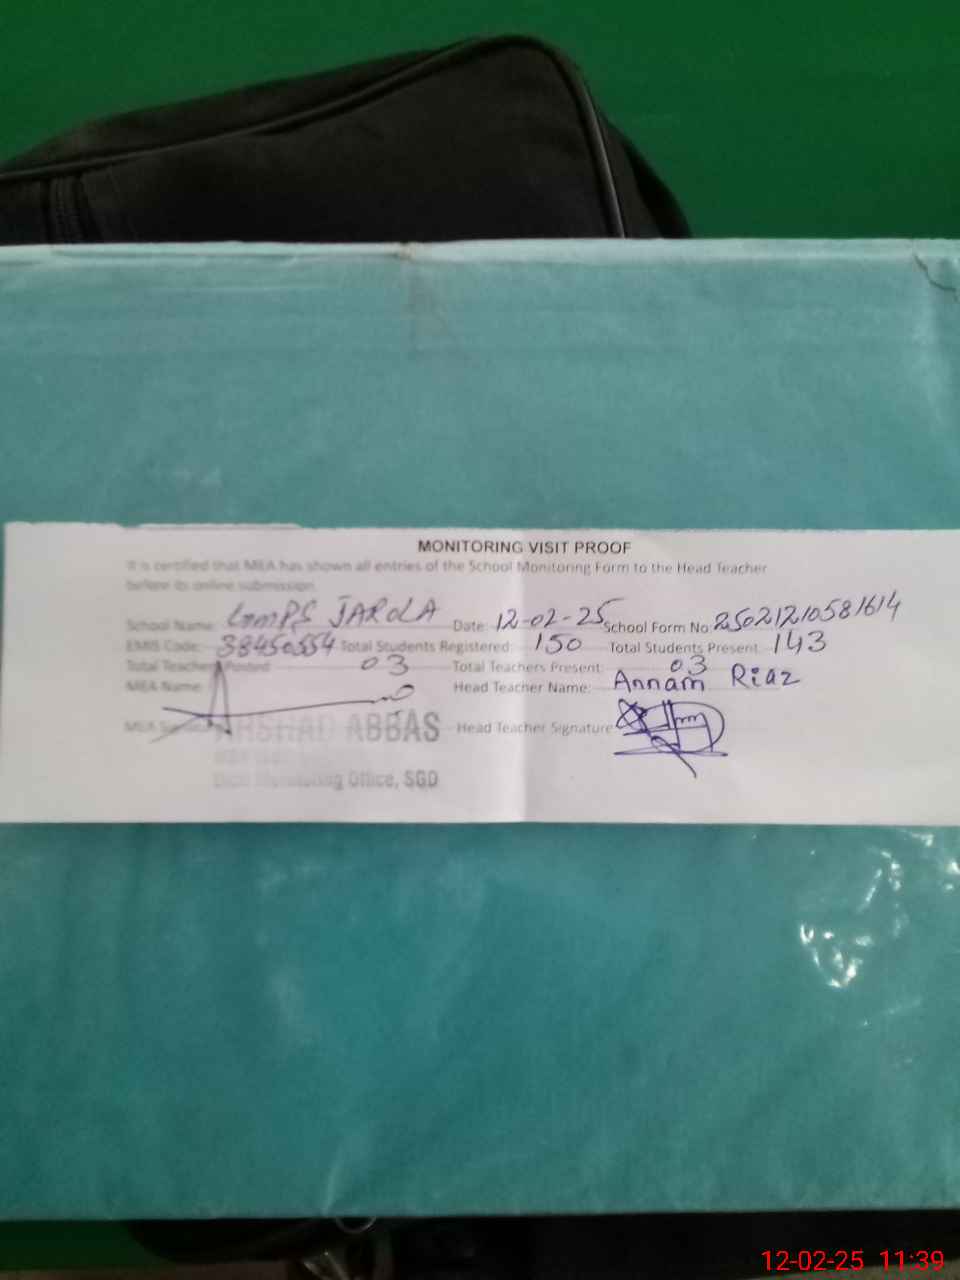 MONITORING VISIT PROOF
It is certified that MEA has shown all entries of the School Monitoring Form to the Head Teacher
before its online submission
School Name: GMPS JAROLA Date: 12-02-25 School Form No: 25021210581614
EMIS Code: 38450554 Total Students Registered: 150 Total Students Present: 143
Total Teachers Posted: 03 Total Teachers Present: 03
MEA Name: Head Teacher Name: Annam Riaz
MEA Signature ARSHAD ABBAS Head Teacher Signature:
Monitoring Office, SGD
12-02-25 11:39